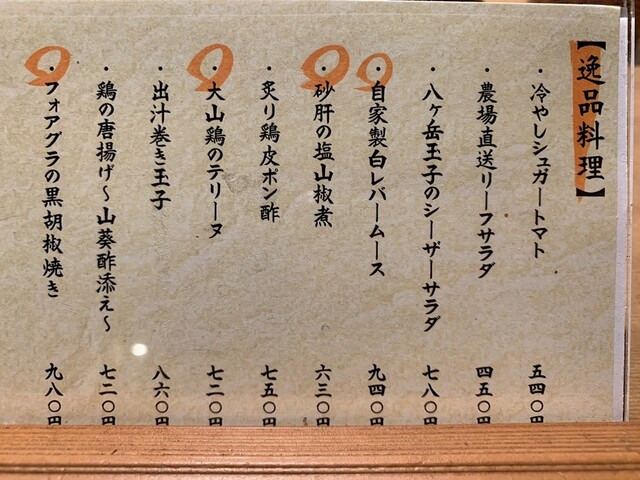 【逸品料理】
・冷やしシュガートマト 五四〇円
・農場直送リーフサラダ 四五〇円
・八ヶ岳玉子のシーザーサラダ 七八〇円
・自家製白レバームース 九四〇円
・砂肝の塩山椒煮 六三〇円
・炙り鶏皮ポン酢 七五〇円
・大山鶏のテリーヌ 七二〇円
・出汁巻き玉子 八六〇円
・鶏の唐揚げ～山葵酢添え～ 七二〇円
・フォアグラの黒胡椒焼き 九八〇円